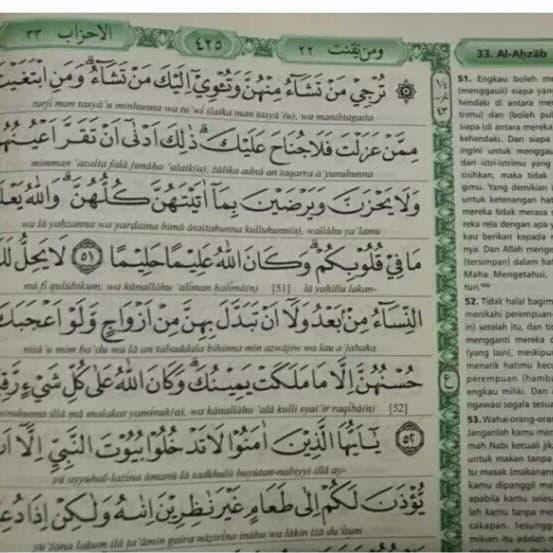 الاحزاب ٣٣
٤٢٥
ومن يقنت ٢٢
۞ تُرْجِيْ مَنْ تَشَاۤءُ مِنْهُنَّ وَتُـْٔوِيْٓ اِلَيْكَ مَنْ تَشَاۤءُۗ وَمَنِ ابْتَغَيْتَ
turjī man tasyā'u minhunna wa tu'wī ilaika man tasyā'(u), wa manibtagaita
مِمَّنْ عَزَلْتَ فَلَا جُنَاحَ عَلَيْكَۗ ذٰلِكَ اَدْنٰٓى اَنْ تَقَرَّ اَعْيُنُهُنَّ
mimman 'azalta falā junāha 'alaik(a), żālika adnā an taqarra a'yunuhunna
وَلَا يَحْزَنَّ وَيَرْضَيْنَ بِمَآ اٰتَيْتَهُنَّ كُلُّهُنَّۗ وَاللّٰهُ يَعْلَمُ
wa lā yahzanna wa yardaina bimā ātaitahunna kulluhunn(a), wallāhu ya'lamu
مَا فِيْ قُلُوْبِكُمْۗ وَكَانَ اللّٰهُ عَلِيْمًا حَلِيْمًا ﴿٥١﴾ لَا يَحِلُّ لَكَ
mā fī qulūbikum, wa kānallāhu 'alīman halīmā(n) [51] lā yahillu lakan-
النِّسَاۤءُ مِنْۢ بَعْدُ وَلَآ اَنْ تَبَدَّلَ بِهِنَّ مِنْ اَزْوَاجٍ وَّلَوْ اَعْجَبَكَ
nisā'u mim ba'du wa lā an tabaddala bihinna min azwājiw wa lau a'jabaka
حُسْنُهُنَّ اِلَّا مَا مَلَكَتْ يَمِيْنُكَۗ وَكَانَ اللّٰهُ عَلٰى كُلِّ شَيْءٍ رَّقِيْبًا
husnuhunna illā mā malakat yamīnuk(a), wa kānallāhu 'alā kulli syai'ir raqībā(n) [52]
﴿٥٢﴾ يٰٓاَيُّهَا الَّذِيْنَ اٰمَنُوْا لَا تَدْخُلُوْا بُيُوْتَ النَّبِيِّ اِلَّآ اَنْ
yā ayyuhal-lażīna āmanū lā tadkhulū buyūtan-nabiyyi illā ay-
يُّؤْذَنَ لَكُمْ اِلٰى طَعَامٍ غَيْرَ نٰظِرِيْنَ اِنٰىهُ وَلٰكِنْ اِذَا دُعِيْتُمْ
yu'żana lakum ilā ta'āmin gaira nāzirīna ināhu wa lākin iżā du'ītum
ع
33. Al-Aḥzāb
51. Engkau boleh me
(menggauli) siapa yan
hendaki di antara me
trimu) dan (boleh pul
siapa (di antara mereka
kehendaki. Dan siapa
ingini untuk mengga
dari istri-istrimu yang
sisihkan, maka tidak
gimu. Yang demikian
untuk ketenangan hat
mereka tidak merasa
reka rela dengan apa y
kau berikan kepada r
nya. Dan Allah menge
(tersimpan) dalam hat
Maha Mengetahui,
tun.
52. Tidak halal bagim
menikahi perempuan
in) setelah itu, dan tid
mengganti mereka d
(yang lain), meskipu
menarik hatimu kecu
perempuan (hamb
engkau miliki. Dan A
ngawasi segala sesua
53. Wahai orang-oran
Janganlah kamu mem
mah Nabi kecuali jik
untuk makan tanpa
tu masak (makanann
kamu dipanggil ma
apabila kamu seles
lah kamu tanpa me
cakapan. Sesungg
mikian itu adalah